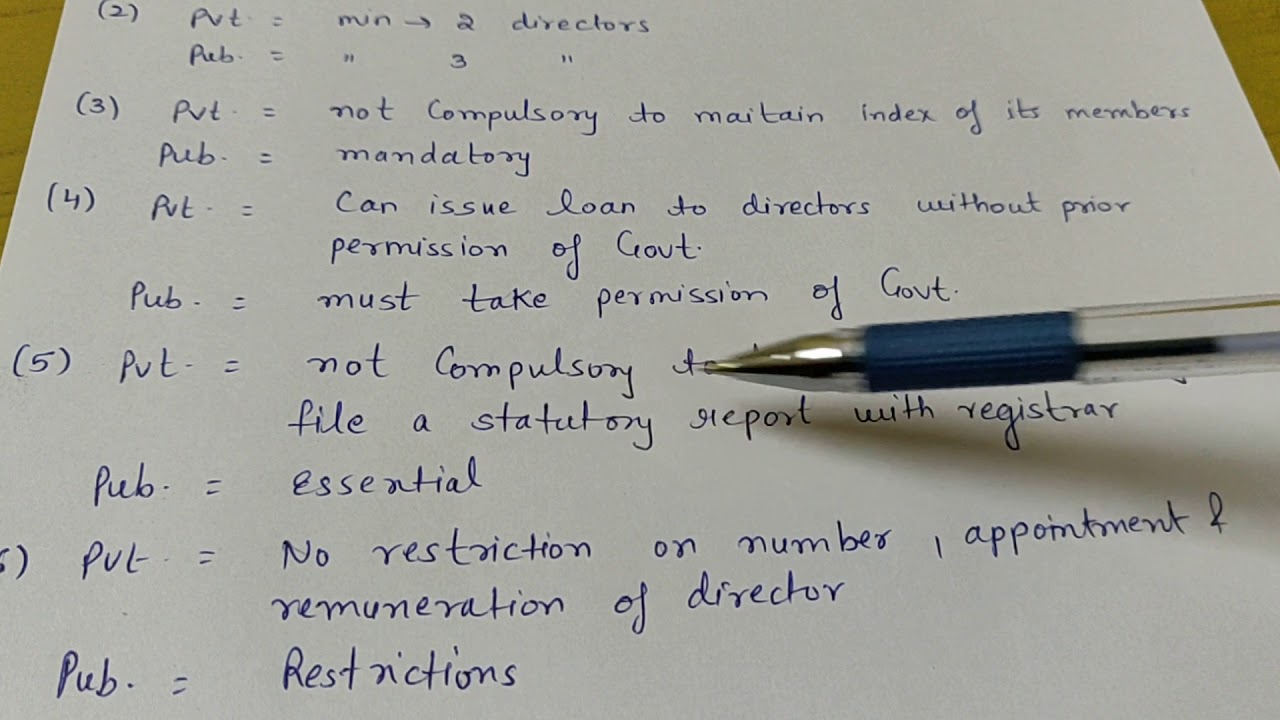 (2) Pvt. = min → 2 directors
Pub. = " 3 "
(3) Pvt. = not compulsory to maitain index of its members
Pub. = mandatory
(4) Pvt. = Can issue loan to directors without prior
permission of Govt.
Pub. = must take permission of Govt.
(5) Pvt. = not compulsory to
file a statutory report with registrar
Pub. = Essential
) Pvt. = No restriction on number, appointment &
remuneration of director
Pub. = Restrictions